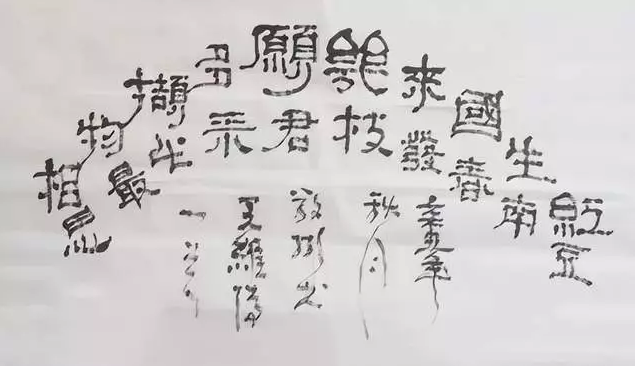 紅豆
生南
國春
來發
幾枝
願君
多采
擷此
物最
相思
辛丑年
秋月
敬书
王維詩
一首